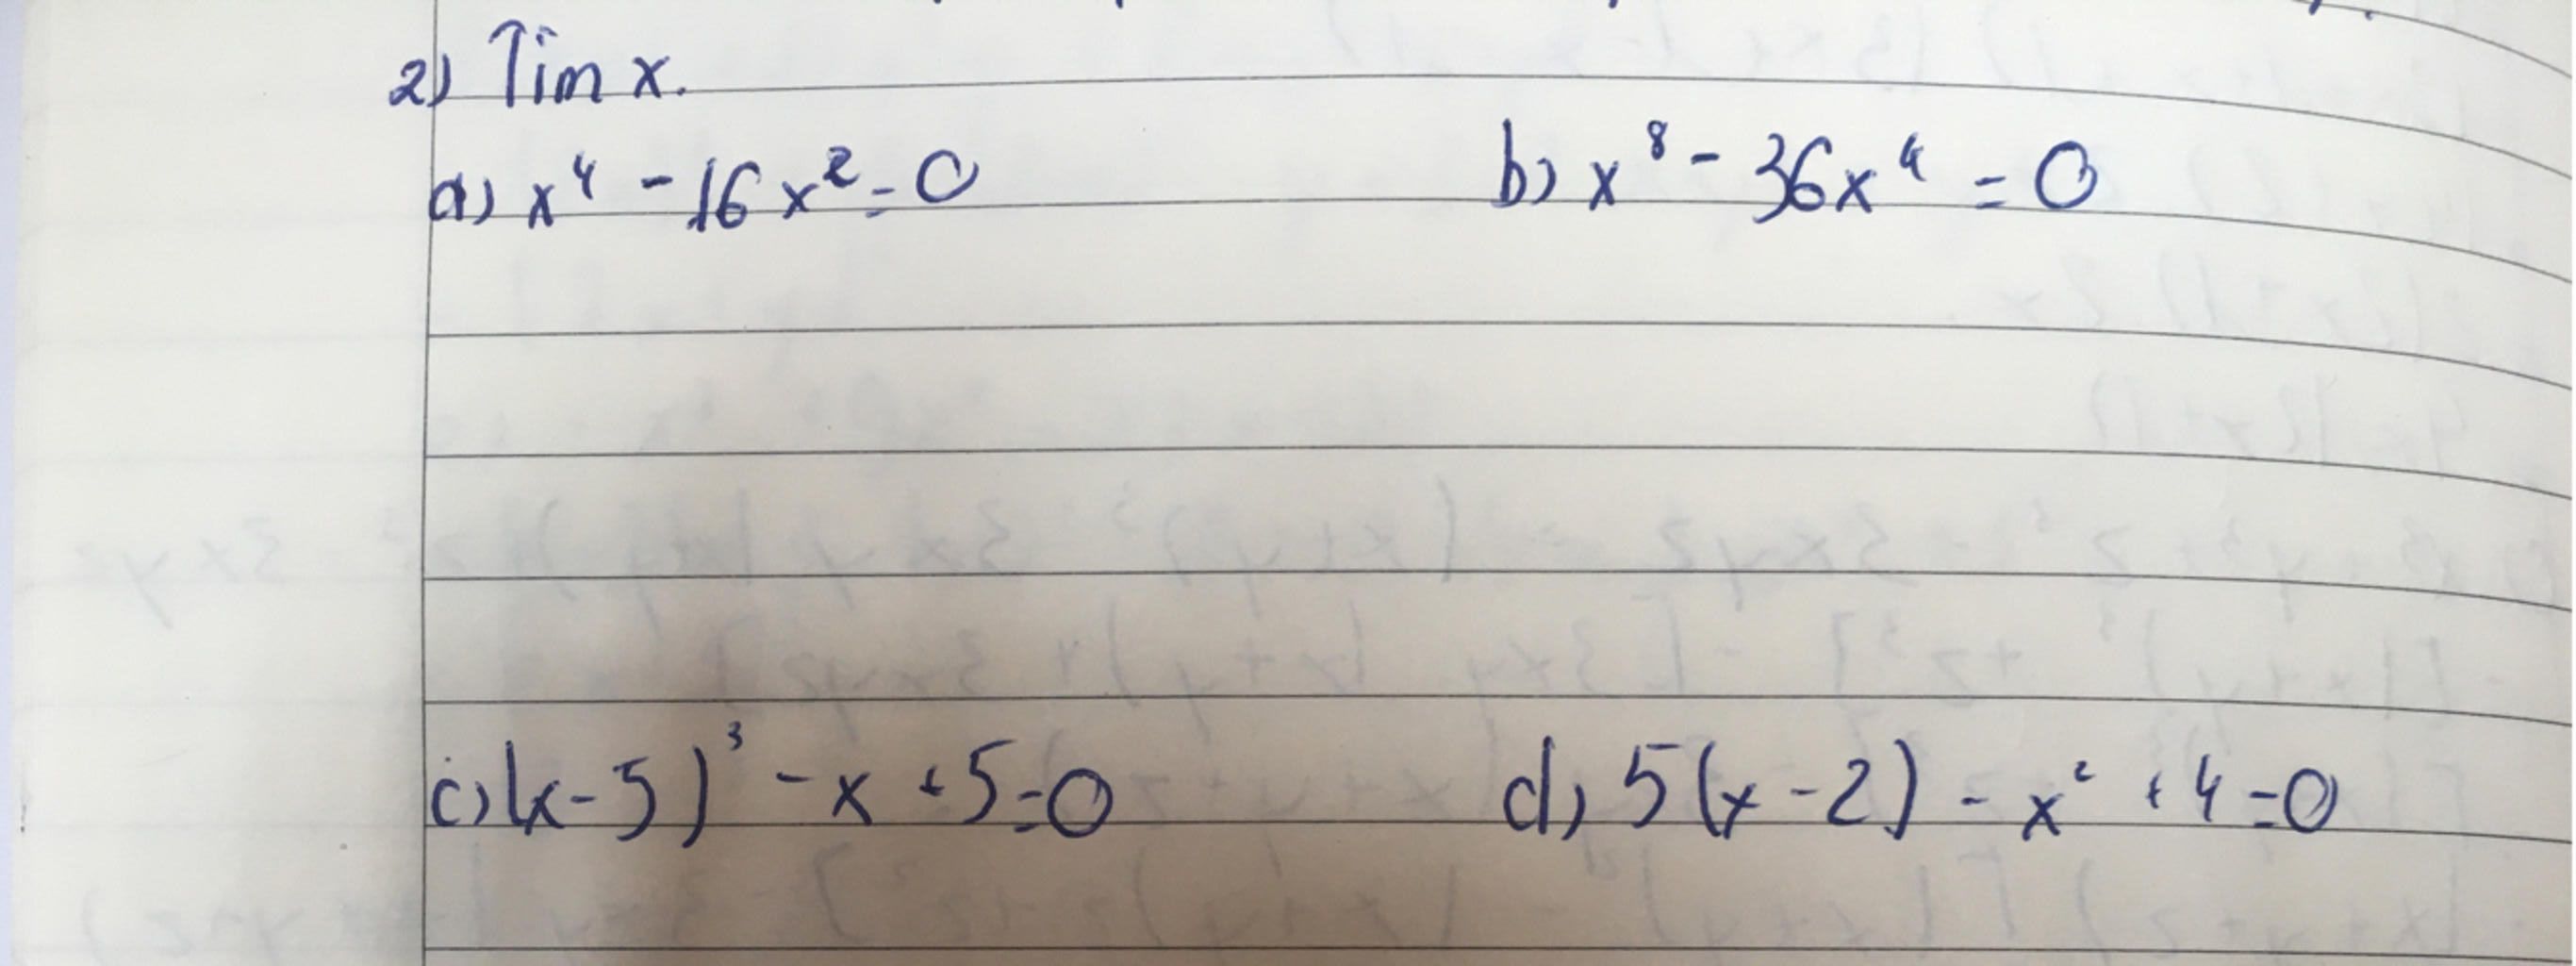 2) Tìm x.
a) x⁴ - 16x² = 0 b) x⁸ - 36x⁴ = 0
c) (x-5)³ - x + 5 = 0 d) 5(x-2) - x² + 4 = 0